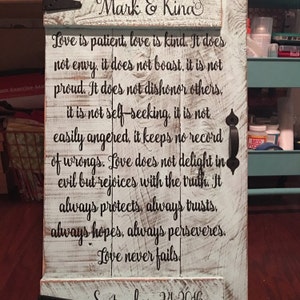 Mark & Kina
Love is patient, love is kind. It does
not envy, it does not boast, it is not
proud. It does not dishonor others,
it is not self-seeking, it is not
easily angered, it keeps no record
of wrongs. Love does not delight in
evil but rejoices with the truth. It
always protects, always trusts,
always hopes, always perseveres.
Love never fails.
September 24